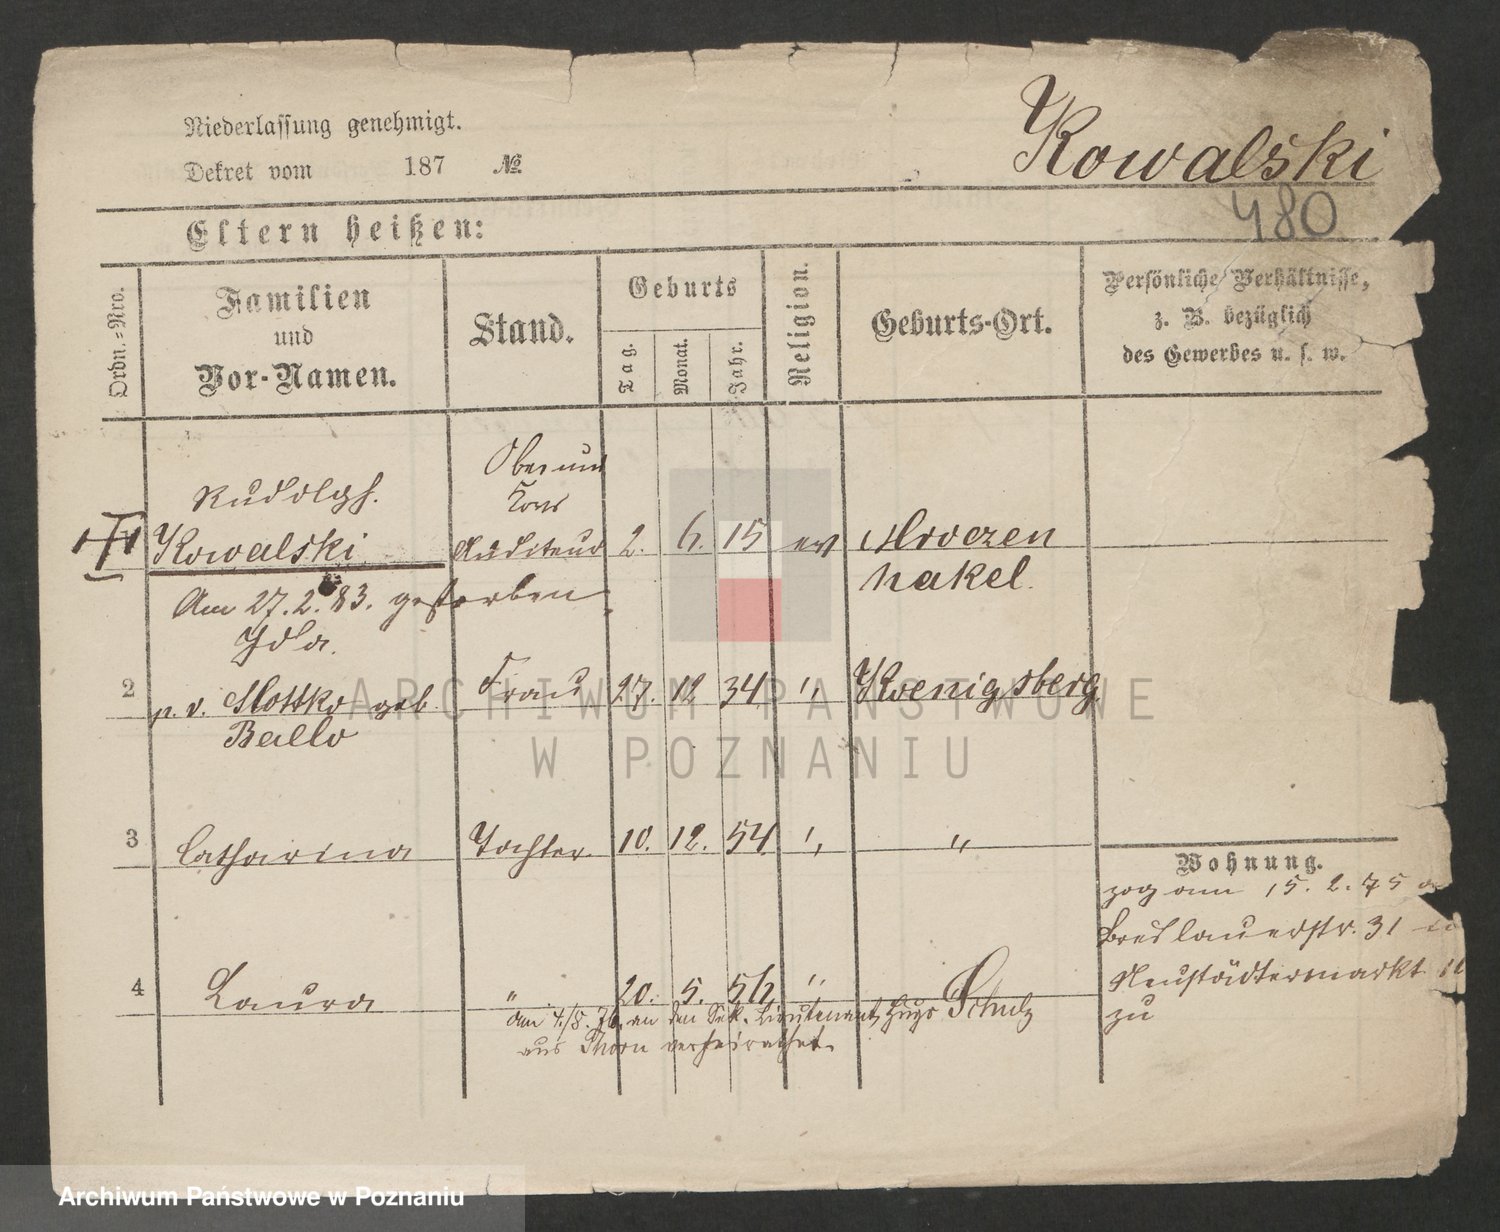 Kowalski
480
Niederlassung genehmigt.
Dekret vom 187 №
Eltern heißen:
Ordn.-Nro.
Familien
und
Vor-Namen.
Stand.
Geburts
Tag.
Monat.
Jahr.
Religion.
Geburts-Ort.
Persönliche Verhältnisse,
z. B. bezüglich
des Gewerbes u. s. w.
Rudolph.
Kowalski
Ober und
Corps
Auditeur
2. 6. 15 ev Mroczen
Nakel.
Am 27.2.83. gestorben
Ida.
2
p. v. Mottko geb
Ballo
Frau 27. 12 34 " Koenigsberg
3 Catharina Tochter 10. 12. 54. " "
4 Laura " 20. 5. 56 "
am 4/8. 76. an den Sek. Lieutenant Hugo Schulz
aus Thorn verheirathet.
Wohnung.
zog am 15. 2. 75
Breslauerstr. 31
Neustädtermarkt
zu
ARCHIWUM PAŃSTWOWE
W POZNANIU
Archiwum Państwowe w Poznaniu